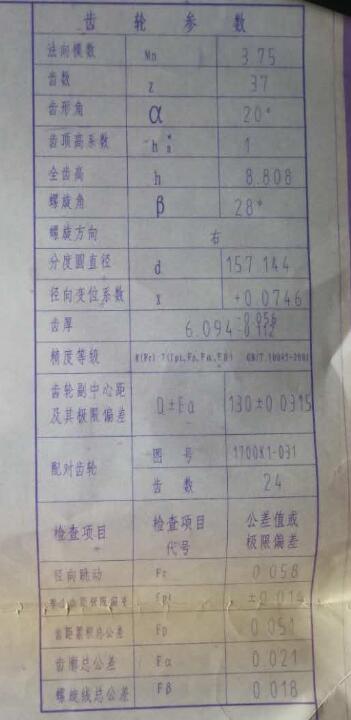 齿轮参数
法向模数 Mn 3.75
齿数 z 37
齿形角 α 20°
齿顶高系数 h*a 1
全齿高 h 8.808
螺旋角 β 28°
螺旋方向 右
分度圆直径 d 157.144
径向变位系数 x +0.0746
齿厚 6.094 -0.056 -0.112
精度等级 8(Fr) 7(fpt,Fp,Fα,Fβ) GB/T 10095-2001
齿轮副中心距
及其极限偏差 a±Fa 130±0.0315
配对齿轮 图号 1700K1-031
齿数 24
检查项目 检查项目代号 公差值或极限偏差
径向跳动 Fr 0.058
fpt ±0.014
齿距累积总公差 Fp 0.051
齿廓总公差 Fα 0.021
螺旋线总公差 Fβ 0.018